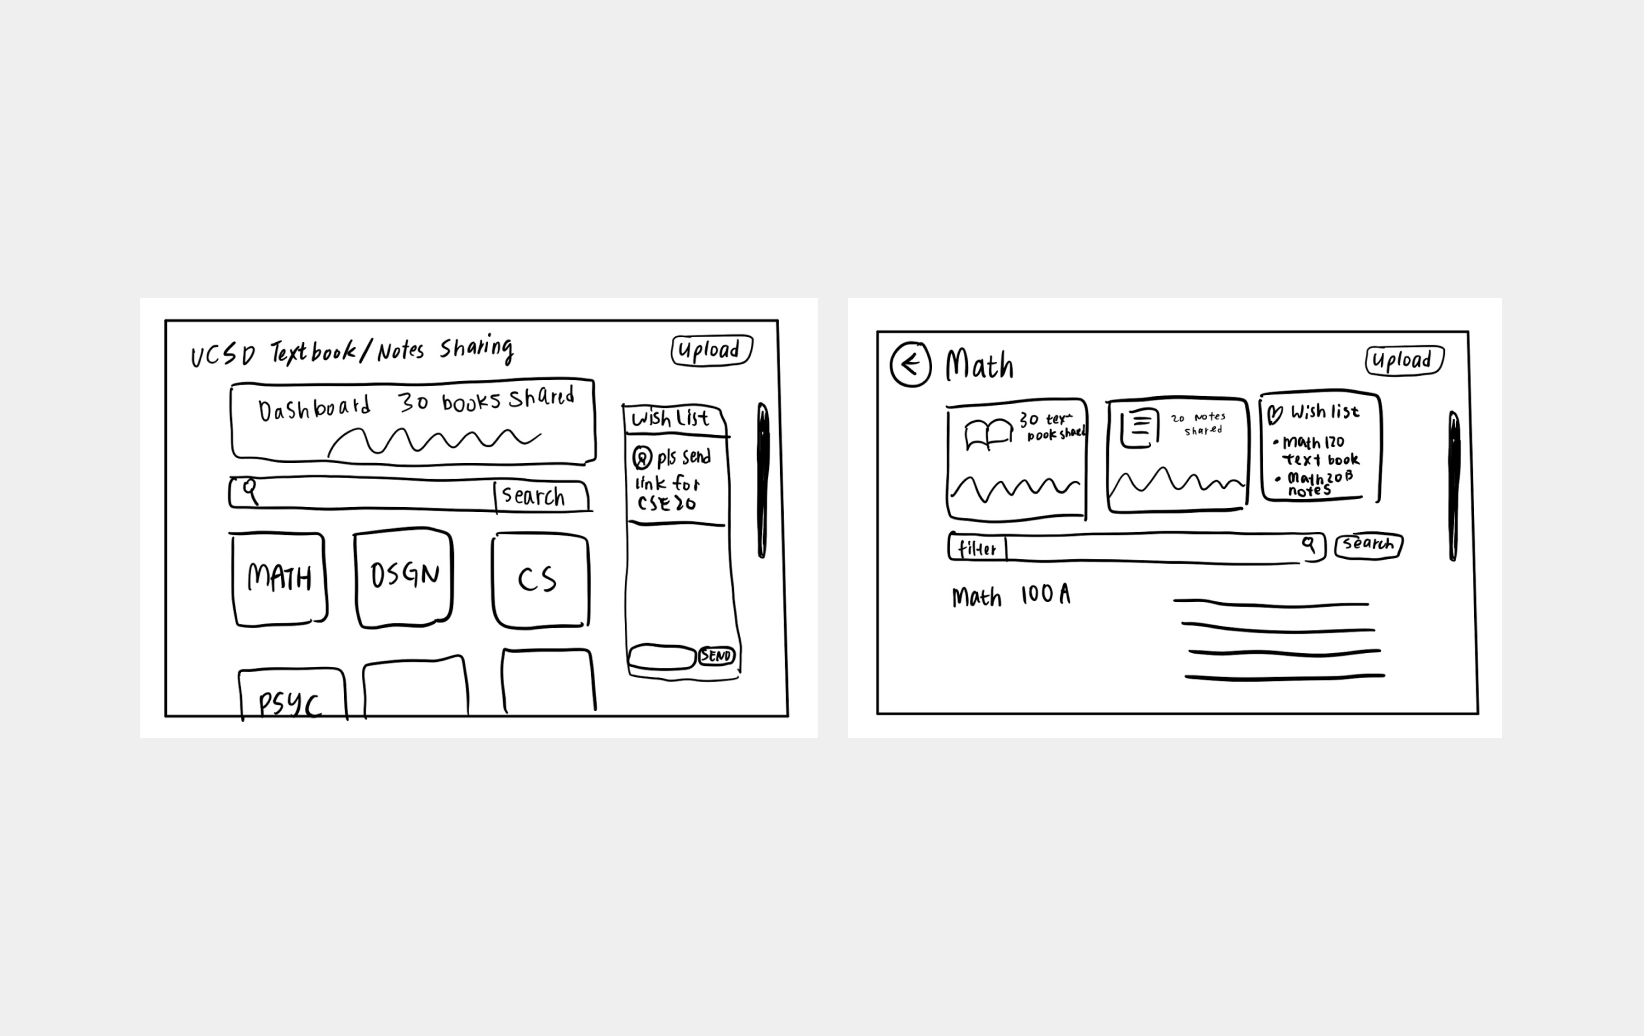 UCSD Textbook/Notes Sharing
Upload
Dashboard 30 books shared
search
MATH
DSGN
CS
PSYC
Wish List
pls send
link for
CSE20
SEND
Math
Upload
30 text
book shared
20 Notes
shared
Wish list
• Math 120
text book
• Math20B
notes
filter
search
Math 100A